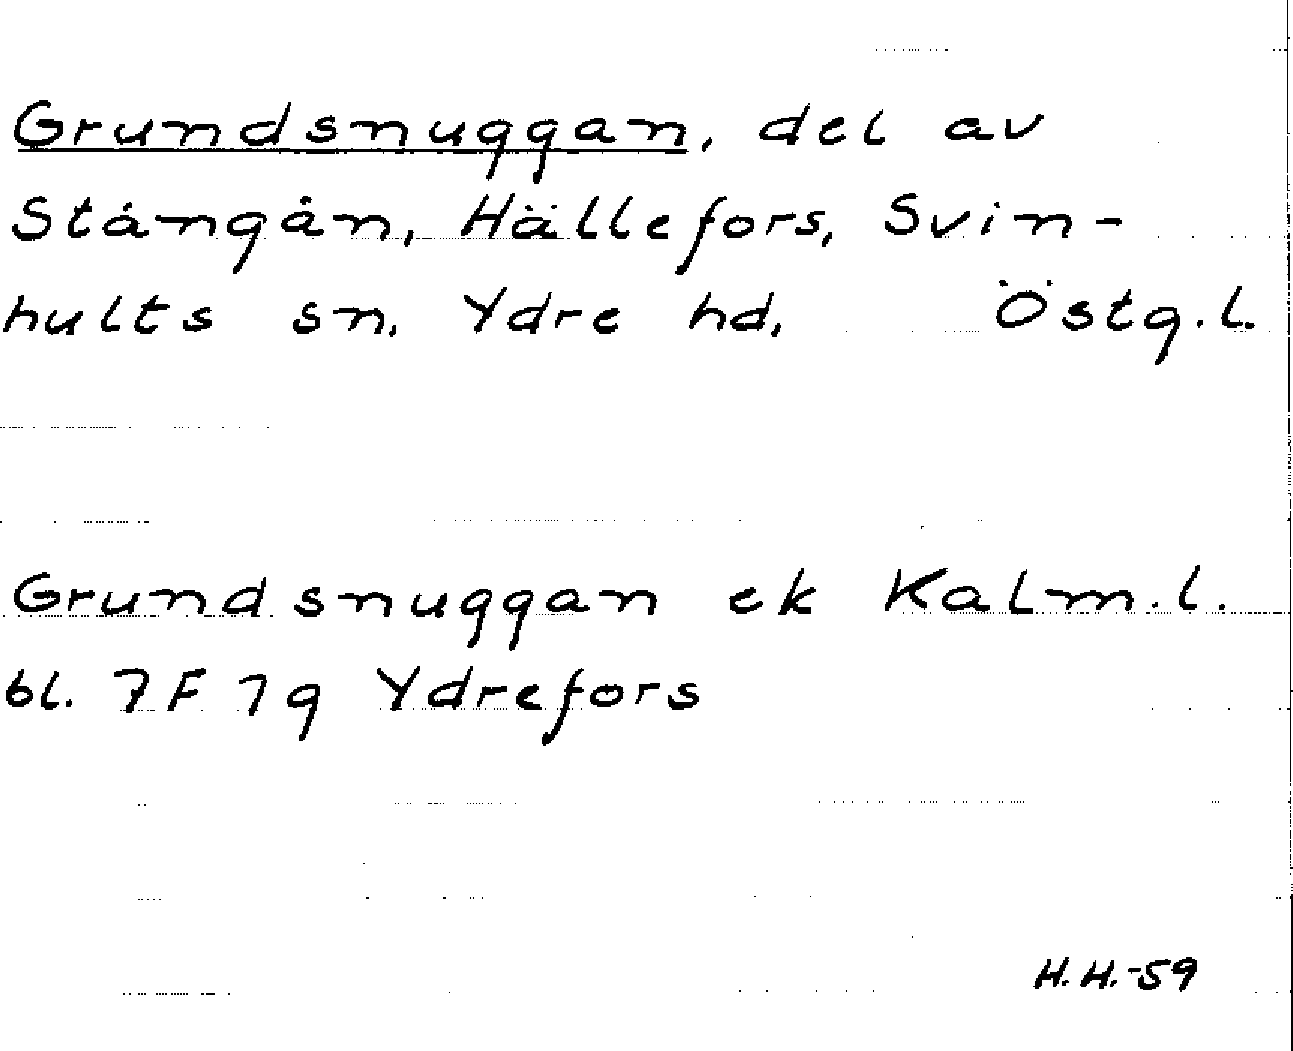 Grundsnuggan, del av
Stångån, Hällefors, Svin-
hults sn, Ydre hd, Östg.l.
Grundsnuggan ek Kalm.l.
bl. 7F 7g Ydrefors
H.H.-59